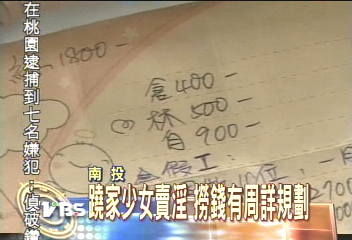 在桃園逮捕到七名嫌犯
1800-
倉400-
林500-
自900-
假工
位:一月
南投
蹺家少女賣淫 撈錢有周詳規劃
TVBS